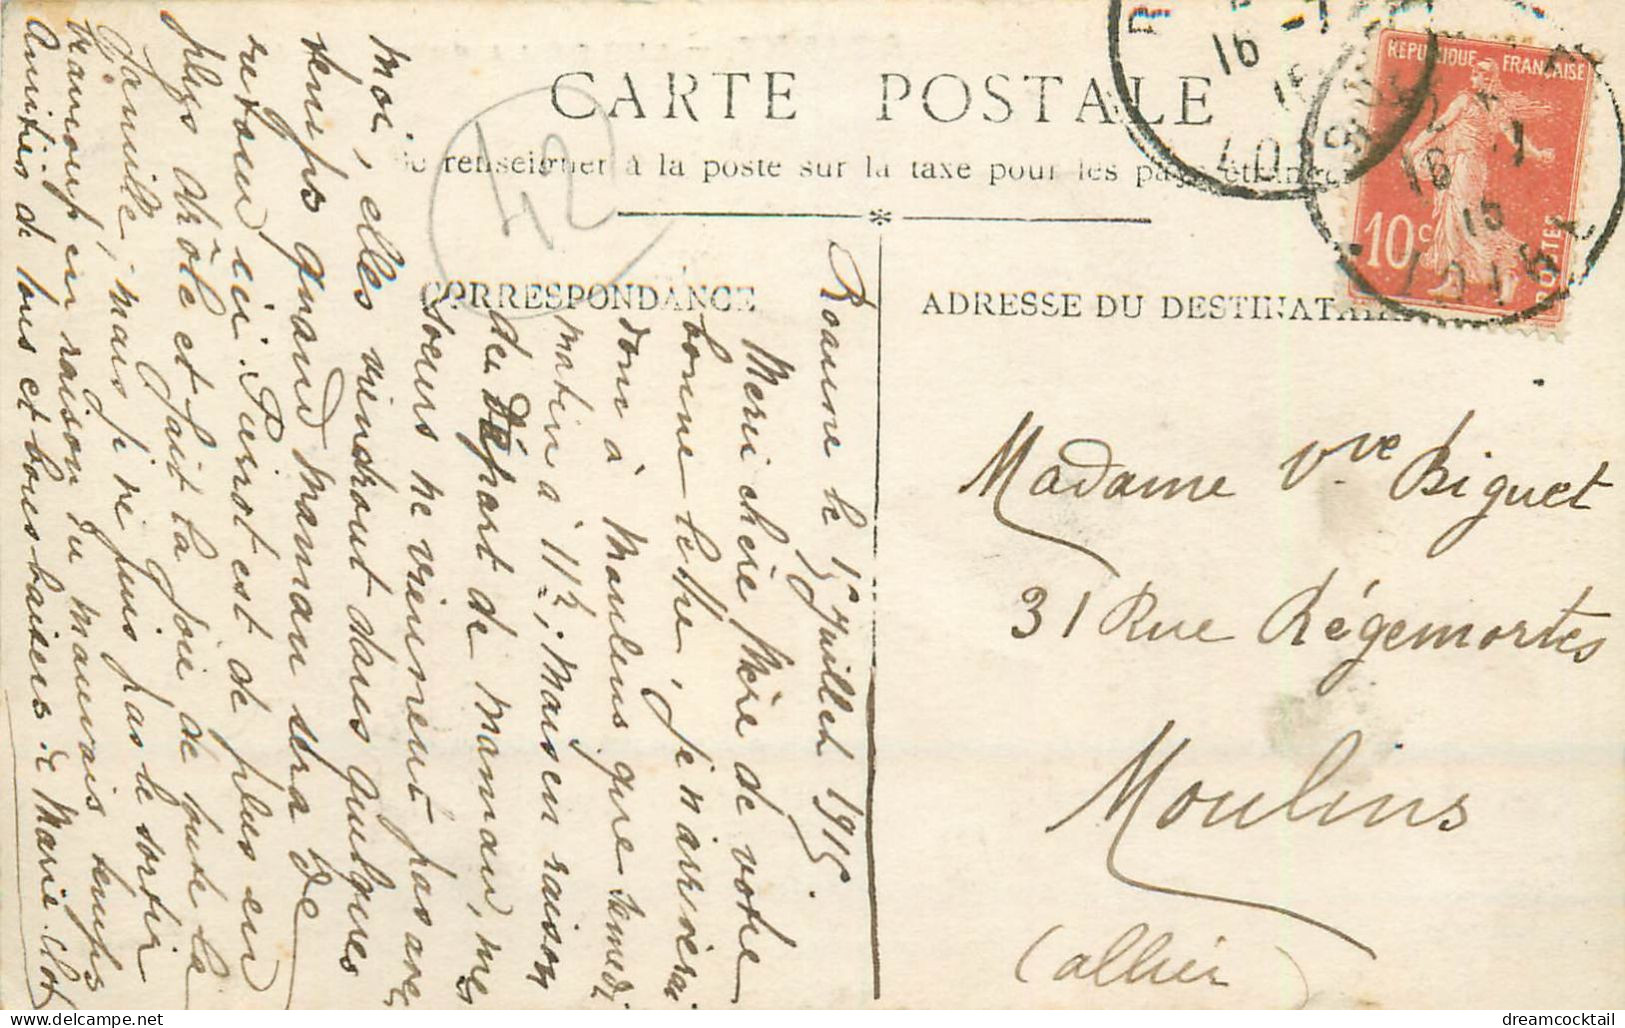 CARTE POSTALE
Se renseigner à la poste sur la taxe pour les pays étrangers
42
CORRESPONDANCE
ADRESSE DU DESTINATAIRE
REPUBLIQUE FRANÇAISE
10c
POSTES
16 -7
15
LOI
16 -7
15
LOIRE
Madame Vve Biguet
31 Rue Régemortes
Moulins
(Allier)
Roanne le 15 Juillet 1915
Merci chère Mère de votre
bonne lettre, je n'arriverai
donc à Moulins que samedi
matin à 11h½; mais en raison
du Départ de Maman, mes
soeurs ne viennent pas avec
moi, elles viendront dans quelques
temps quand maman sera de
retour ici. Pierrot est de plus en
plus drôle et fait la joie de toute la
famille, mais je ne puis pas le sortir
beaucoup en raison du mauvais temps
Amitiés de tous et bons baisers de Marie-Clot
dreamcocktail